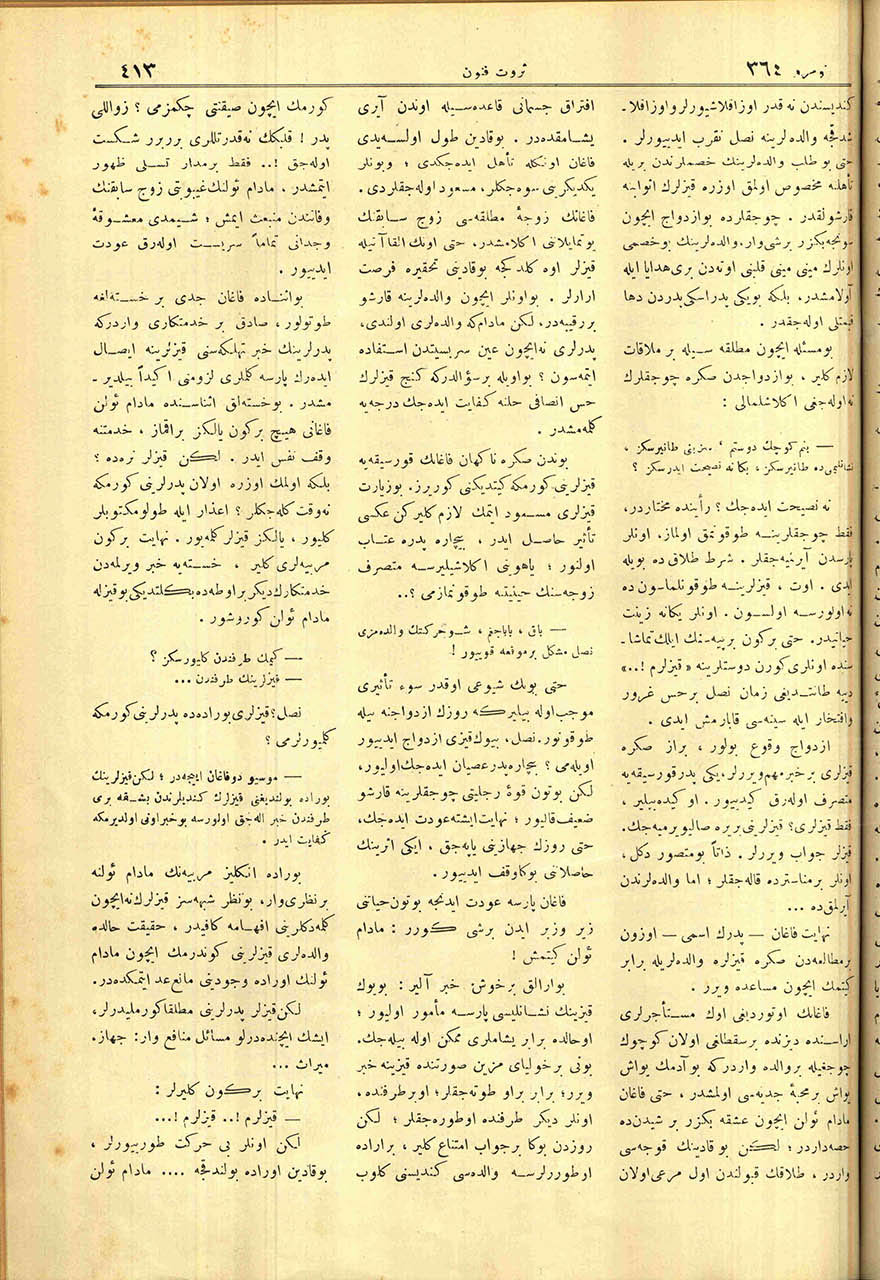 نومرو ٣٦٤
ثروت فنون
٤١٣
كنديسندن نه قدر اوزاقلاشيورلر واوزاقلا-
شدقجه والده‌لرينه نصل تقرب ايديبورلر .
حتى بو طلب والده‌لرينك خصملرندن بريله
تأهله مخصوص اولمق اوزره قيزلرك انوابنه
قارشولقدر . چوجقلرده بوازدواج ايچون
سونجه بكزر برشى وار. والده‌لرينك بوخصمى
اونلرك مينى مينى قلبنى اوته‌دن برى هدايا ايله
آولامشدر، بلكه بويكى پدر اسكى پدردن دها
قيمتلى اوله‌جقدر .
بومسئله ايچون مطلقه سيله بر ملاقات
لازم كلير ، بوازدواجدن صكره چوجقلرك
نه اوله‌جغى اكلاشلمالى :
— بنم كوچك دوستم ، بزى طانيرسكز ،
نشانلمى ده طانيرسكز ، بكا نه نصيحت ايدرسكز ؟
نه نصيحت ايده‌جك ؟ رأينده مختاردر،
فقط چوجقلرينه طوقونمق اولماز. اونلر
پارسدن آيرلميه‌جقلر . شرط طلاق ده بويله
ايدى . اوت ، قيزلرينه طوقونلماسون ده
نه اولورسه اولسون . اونلر يكانه زينت
حياتيدر. حتى بركون بربيه‌سنك ايلك تماشا-
سنده اونلرى كورن دوستلرينه « قيزلرم !..»
ديه طانتديغى زمان نصل برحس غرور
وافتخار ايله سينه‌سى قابارمش ايدى .
ازدواج وقوع بولور ، براز صكره
قيزلرى برخبر مهم ويررلر، يكى پدر قورسيقه‌يه
متصرف اوله‌رق كيدييور . او كيده‌بيلير ،
فقط قيزلرى؟ قيزلرينى بريره صاليويرميه‌جك.
قيزلر جواب ويررلر . ذاتاً بومتصور دكل،
اونلر برمناسترده قاله‌جقلر ؛ اما والده‌لرندن
آيرلمق ده ...
نهايت فاغان — پدرك اسمى — اوزون
برمطالعه‌دن صكره قيزلره والده‌لريله برابر
كيتمك ايچون مساعده ويرر .
فاغانك اوتورديغى اوك مستأجرلرى
اراسنده ديزنده برسقطلغى اولان كوچوك
چوجغيله بروالده واردركه بوآدمك يواش
يواش برمحبهٔ جديه‌سى اولمشدر ، حتى فاغان
مادام ئولن ايچون عشقه بكزر بر شيدن ده
حصه‌داردر ؛ لكن بو قادينك قوجه‌سى
واردر ، طلاقك قبولندن اول مرعى اولان
افتراق جسمانى قاعده‌سيله اوندن آيرى
يشامقده‌در . بوقادين طول اولسه‌يدى
فاغان اونكله تأهل ايده‌جكدى ؛ وبونلر
يكديكرينى سوه‌جكلر، مسعود اوله‌جقلردى .
فاغانك زوجهٔ مطلقه‌سى زوج سابقنك
بوتمايلاتنى اكلامشدر، حتى اونك القاآتيله
قيزلر اوه كلدكجه بوقادينى تحقيره فرصت
ارارلر . بواونلر ايچون والده‌لرينه قارشو
بررقيبه‌در، لكن مادامكه والده‌لرى اولندى،
پدرلرى نه ايچون عين سربستيدن استفاده
ايتمه‌سون ؟ بواويله برسؤالدركه كنج قيزلرك
حس انصافى حلنه كفايت ايده‌جك درجه‌يه
كلمه‌مشدر .
بوندن صكره ناكهان فاغانك قورسيقه‌يه
قيزلرينى كورمكه كيتديكنى كورريز. بوزيارت
قيزلرى مسعود ايتمك لازم كليركن عكسى
تأثير حاصل ايدر ، بيچاره پدره عتاب
اولنور ؛ ياهويتى اكلاشيليرسه متصرف
زوجه‌سنك حيثيتنه طوقونمازمى ؟..
— باق ، باباجغم ، شو حركتك والده‌مزى
نصل مشكل برموقعه قويبور !
حتى بونك شيوعى اوقدر سوء تأثيرى
موجب اوله بيليركه روزك ازدواجنه بيله
طوقونور. نصل، بيوك قيزى ازدواج ايديبور
اويله‌مى ؟ بيچاره پدر عصيان ايده‌جك اوليور،
لكن بوتون قوهٔ رجليتى چوجقلرينه قارشو
ضعيف قاليور ؛ نهايت ايشته عودت ايده‌جك،
حتى روزك جهازينى ياپه‌جق ، ايكى اثرينك
حاصلاتنى بوكا وقف ايديبور .
فاغان پارسه عودت ايدنجه بوتون حياتنى
زير وزبر ايدن برشى كورر : مادام
ئولن كيتمش !
بوارالق برخوش خبر آلير : بويوك
قيزينك نشانليسى پارسه مأمور اوليور ؛
اوحالده برابر يشاملرى ممكن اوله بيله‌جك.
بونى برخولياى مزين صورتنده قيزينه خبر
ويرر؛ برابر براو طوته‌جقلر؛ اوبرطرفنده،
اونلر ديكر طرفنده اوطوره‌جقلر ؛ لكن
روزدن بوكا برجواب امتناع كلير ، براراده
اوطوررلرسه والده‌سى كنديسنى كلوب
كورمك ايچون صيقنتى چكمزمى ؟ زواللى
پدر ! قلبكك نه قدر تللرى بربرر شكست
اوله‌جق !.. فقط برمدار تسلى ظهور
ايتمشدر ، مادام ئولنك غيبوبتى زوج سابقنك
وفاتندن منبعث ايمش ؛ شيمدى معشوقهٔ
وجدانى تماماً سربست اوله‌رق عودت
ايديبور .
بواثناده فاغان جدى بر خسته‌لغه
طوتولور ، صادق بر خدمتكارى واردركه
پدرلرينك خبر تهلكه‌سنى قيزلرينه ايصال
ايده‌رك پارسه كلملرى لزومنى اكيداً بيلدير-
مشدر . بوخسته‌لق اثناسنده مادام ئولن
فاغانى هيچ بركون يالكز براقماز ، خدمتنه
وقف نفس ايدر . لكن قيزلر نره‌ده ؟
بلكه اولمك اوزره اولان پدرلرينى كورمكه
نه‌وقت كله‌جكلر ؟ اعذار ايله طولو مكتوبلر
كليور ، يالكز قيزلر كلمه‌يور . نهايت بركون
مربيه‌لرى كلير ، خسته‌يه خبر ويرلمه‌دن
خدمتكارك ديكر براوطه‌ده بكلتديكى بوقيزله
مادام ئولن كوروشور .
— كيمك طرفندن كليورسكز ؟
— قيزلرينك طرفندن ...
نصل؟ قيزلرى بوراده‌ده پدرلرينى كورمكه
كلميورلرمى ؟
— موسيو دوفاغان ايچه‌در ؛ لكن قيزلرينك
بوراده بولنديغنى قيزلرك كنديلرندن بشقه برى
طرفندن خبر اله‌جق اولورسه بوخبر اونى اولديرمكه
كفايت ايدر .
بوراده انكليز مربيه‌نك مادام ئولنه
برنظرى وار، بونظر شبهه‌سز قيزلرك نه ايچون
كلمه‌دكلرينى افهامه كافيدر ، حقيقت حالده
والده‌لرى قيزلرينى كوندرمك ايچون مادام
ئولنك اوراده وجودينى مانع عد ايتمكده‌در.
لكن قيزلر پدرلرينى مطلقا كورمليدرلر،
ايشك ايچنده درلو مسائل منافع وار: جهاز.
ميراث ...
نهايت بركون كليرلر :
— قيزلرم !.. قيزلرم !...
لكن اونلر بى حركت طوربيورلر ،
بوقادين اوراده بولندقجه .... مادام ئولن